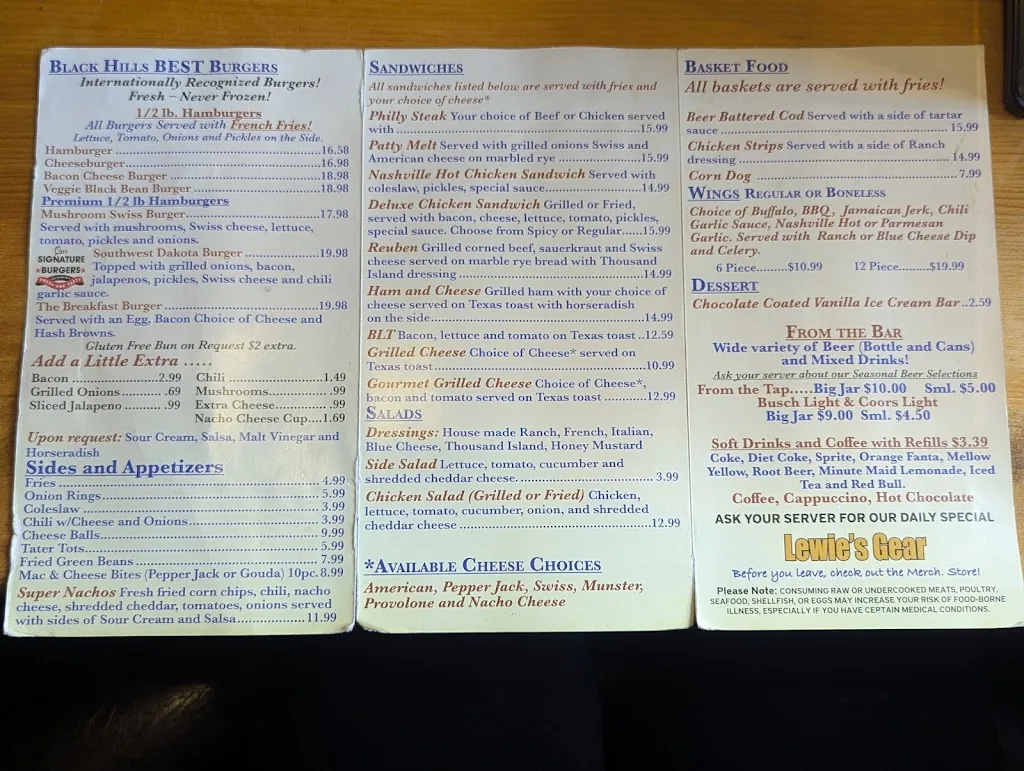 BLACK HILLS BEST BURGERS
Internationally Recognized Burgers!
Fresh – Never Frozen!
1/2 lb. Hamburgers
All Burgers Served with French Fries!
Lettuce, Tomato, Onions and Pickles on the Side.
Hamburger 16.58
Cheeseburger 16.98
Bacon Cheese Burger 18.98
Veggie Black Bean Burger 18.98
Premium 1/2 lb Hamburgers
Mushroom Swiss Burger 17.98
Served with mushrooms, Swiss cheese, lettuce,
tomato, pickles and onions.
SIGNATURE
BURGERS
Southwest Dakota Burger 19.98
Topped with grilled onions, bacon,
jalapenos, pickles, Swiss cheese and chili
garlic sauce.
The Breakfast Burger 19.98
Served with an Egg, Bacon Choice of Cheese and
Hash Browns.
Gluten Free Bun on Request $2 extra.
Add a Little Extra .....
Bacon 2.99 Chili 1.49
Grilled Onions .69 Mushrooms .99
Sliced Jalapeno .99 Extra Cheese .99
Nacho Cheese Cup 1.69
Upon request: Sour Cream, Salsa, Malt Vinegar and
Horseradish
Sides and Appetizers
Fries 4.99
Onion Rings 5.99
Coleslaw 3.99
Chili w/Cheese and Onions 3.99
Cheese Balls 9.99
Tater Tots 5.99
Fried Green Beans 7.99
Mac & Cheese Bites (Pepper Jack or Gouda) 10pc. 8.99
Super Nachos Fresh fried corn chips, chili, nacho
cheese, shredded cheddar, tomatoes, onions served
with sides of Sour Cream and Salsa 11.99
SANDWICHES
All sandwiches listed below are served with fries and
your choice of cheese*
Philly Steak Your choice of Beef or Chicken served
with 15.99
Patty Melt Served with grilled onions Swiss and
American cheese on marbled rye 15.99
Nashville Hot Chicken Sandwich Served with
coleslaw, pickles, special sauce 14.99
Deluxe Chicken Sandwich Grilled or Fried,
served with bacon, cheese, lettuce, tomato, pickles,
special sauce. Choose from Spicy or Regular 15.99
Reuben Grilled corned beef, sauerkraut and Swiss
cheese served on marble rye bread with Thousand
Island dressing 14.99
Ham and Cheese Grilled ham with your choice of
cheese served on Texas toast with horseradish
on the side 14.99
BLT Bacon, lettuce and tomato on Texas toast 12.59
Grilled Cheese Choice of Cheese* served on
Texas toast 10.99
Gourmet Grilled Cheese Choice of Cheese*,
bacon and tomato served on Texas toast 12.99
SALADS
Dressings: House made Ranch, French, Italian,
Blue Cheese, Thousand Island, Honey Mustard
Side Salad Lettuce, tomato, cucumber and
shredded cheddar cheese. 3.99
Chicken Salad (Grilled or Fried) Chicken,
lettuce, tomato, cucumber, onion, and shredded
cheddar cheese 12.99
*AVAILABLE CHEESE CHOICES
American, Pepper Jack, Swiss, Munster,
Provolone and Nacho Cheese
BASKET FOOD
All baskets are served with fries!
Beer Battered Cod Served with a side of tartar
sauce 15.99
Chicken Strips Served with a side of Ranch
dressing 14.99
Corn Dog 7.99
WINGS REGULAR OR BONELESS
Choice of Buffalo, BBQ, Jamaican Jerk, Chili
Garlic Sauce, Nashville Hot or Parmesan
Garlic. Served with Ranch or Blue Cheese Dip
and Celery.
6 Piece $10.99 12 Piece $19.99
DESSERT
Chocolate Coated Vanilla Ice Cream Bar 2.59
FROM THE BAR
Wide variety of Beer (Bottle and Cans)
and Mixed Drinks!
Ask your server about our Seasonal Beer Selections
From the Tap.....Big Jar $10.00 Sml. $5.00
Busch Light & Coors Light
Big Jar $9.00 Sml. $4.50
Soft Drinks and Coffee with Refills $3.39
Coke, Diet Coke, Sprite, Orange Fanta, Mellow
Yellow, Root Beer, Minute Maid Lemonade, Iced
Tea and Red Bull.
Coffee, Cappuccino, Hot Chocolate
ASK YOUR SERVER FOR OUR DAILY SPECIAL
Lewie's Gear
Before you leave, check out the Merch. Store!
Please Note: CONSUMING RAW OR UNDERCOOKED MEATS, POULTRY,
SEAFOOD, SHELLFISH, OR EGGS MAY INCREASE YOUR RISK OF FOOD-BORNE
ILLNESS, ESPECIALLY IF YOU HAVE CERTAIN MEDICAL CONDITIONS.